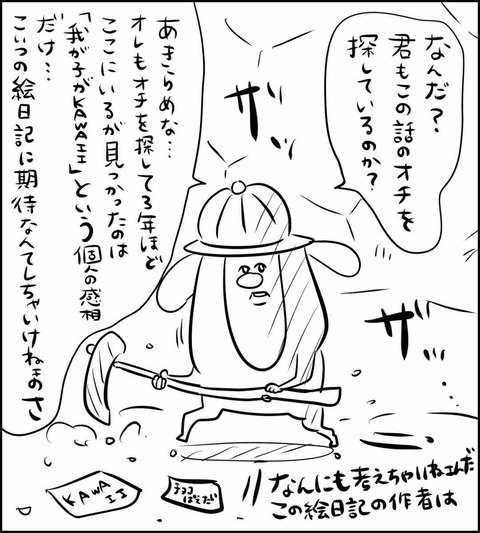 なんだ？
君もこの話のオチを
探しているのか？
ザッ
あきらめな…
オレもオチを探して3年ほど
ここにいるが見つかったのは
「我が子がKAWAII」という個人の感想
だけ…
こいつの絵日記に期待なんてしちゃいけねェのさ
ザッ…
KAWAII
なんにも考えちゃいねェんだ
この絵日記の作者は